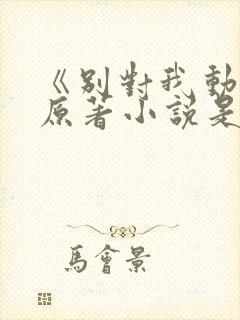 《别對我動
原著小說是
馬會景